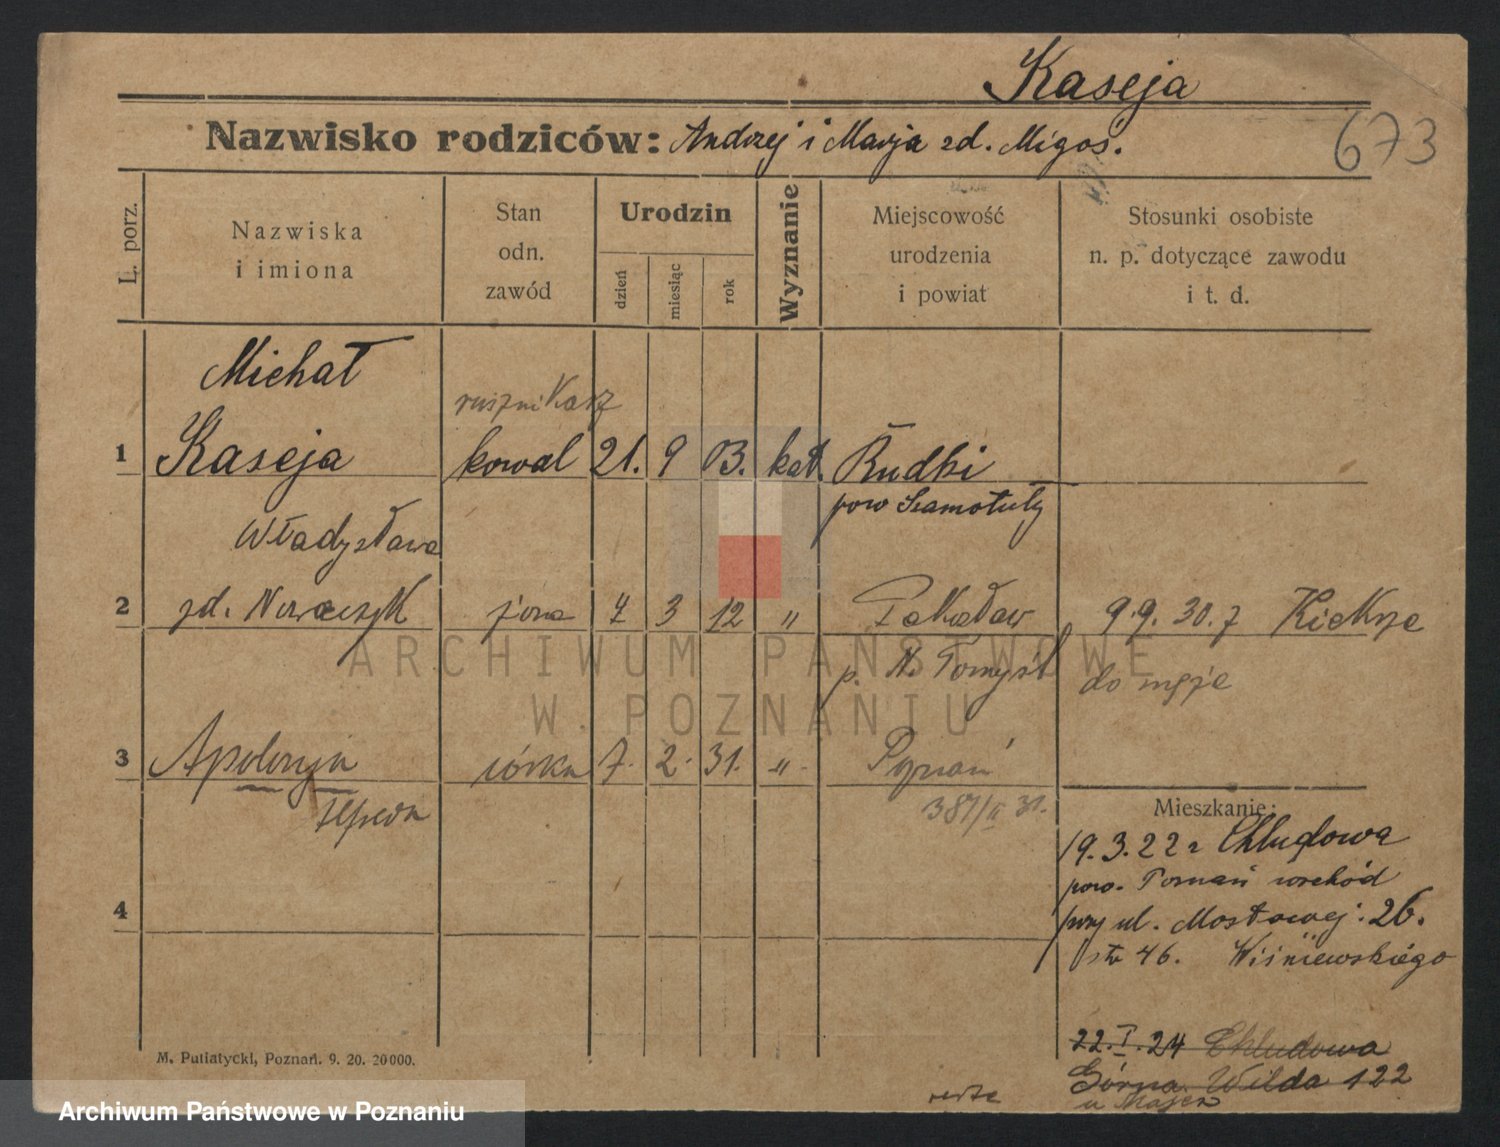 Kaseja
673
Nazwisko rodziców: Andrzej i Marja zd. Migos.
L. porz.
Nazwiska
i imiona
Stan
odn.
zawód
Urodzin
dzień
miesiąc
rok
Wyznanie
Miejscowość
urodzenia
i powiat
Stosunki osobiste
n. p. dotyczące zawodu
i t. d.
Michał
rusznikarz
1 Kaseja kowal 21. 9 03. kat. Rudki
pow Szamotuły
Władysława
2 zd. Nowaczyk żona 7 3 12 " Pakosław 9.9.30. z Kiekrze
p. N. Tomyśl do męża
3 Apolonja córka 7. 2. 31. " Poznań
387/II 31.
Mieszkanie:
19.3.22 z Chludowa
pow. Poznań wschód
przy ul. Mostowej: 26.
str 46. Wiśniewskiego
4
22.I.24 Chludowa
Górna Wilda 122
M. Putiatycki, Poznań. 9. 20. 20000.
ARCHIWUM PAŃSTWOWE
W POZNANIU
Archiwum Państwowe w Poznaniu